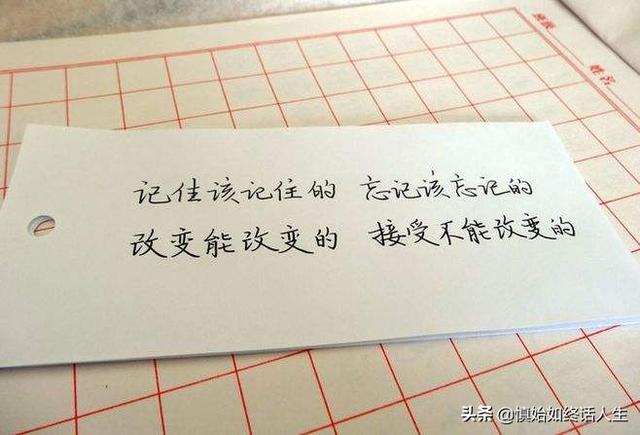 班级
姓名
记住该记住的 忘记该忘记的
改变能改变的 接受不能改变的
头条 @慎始如终话人生